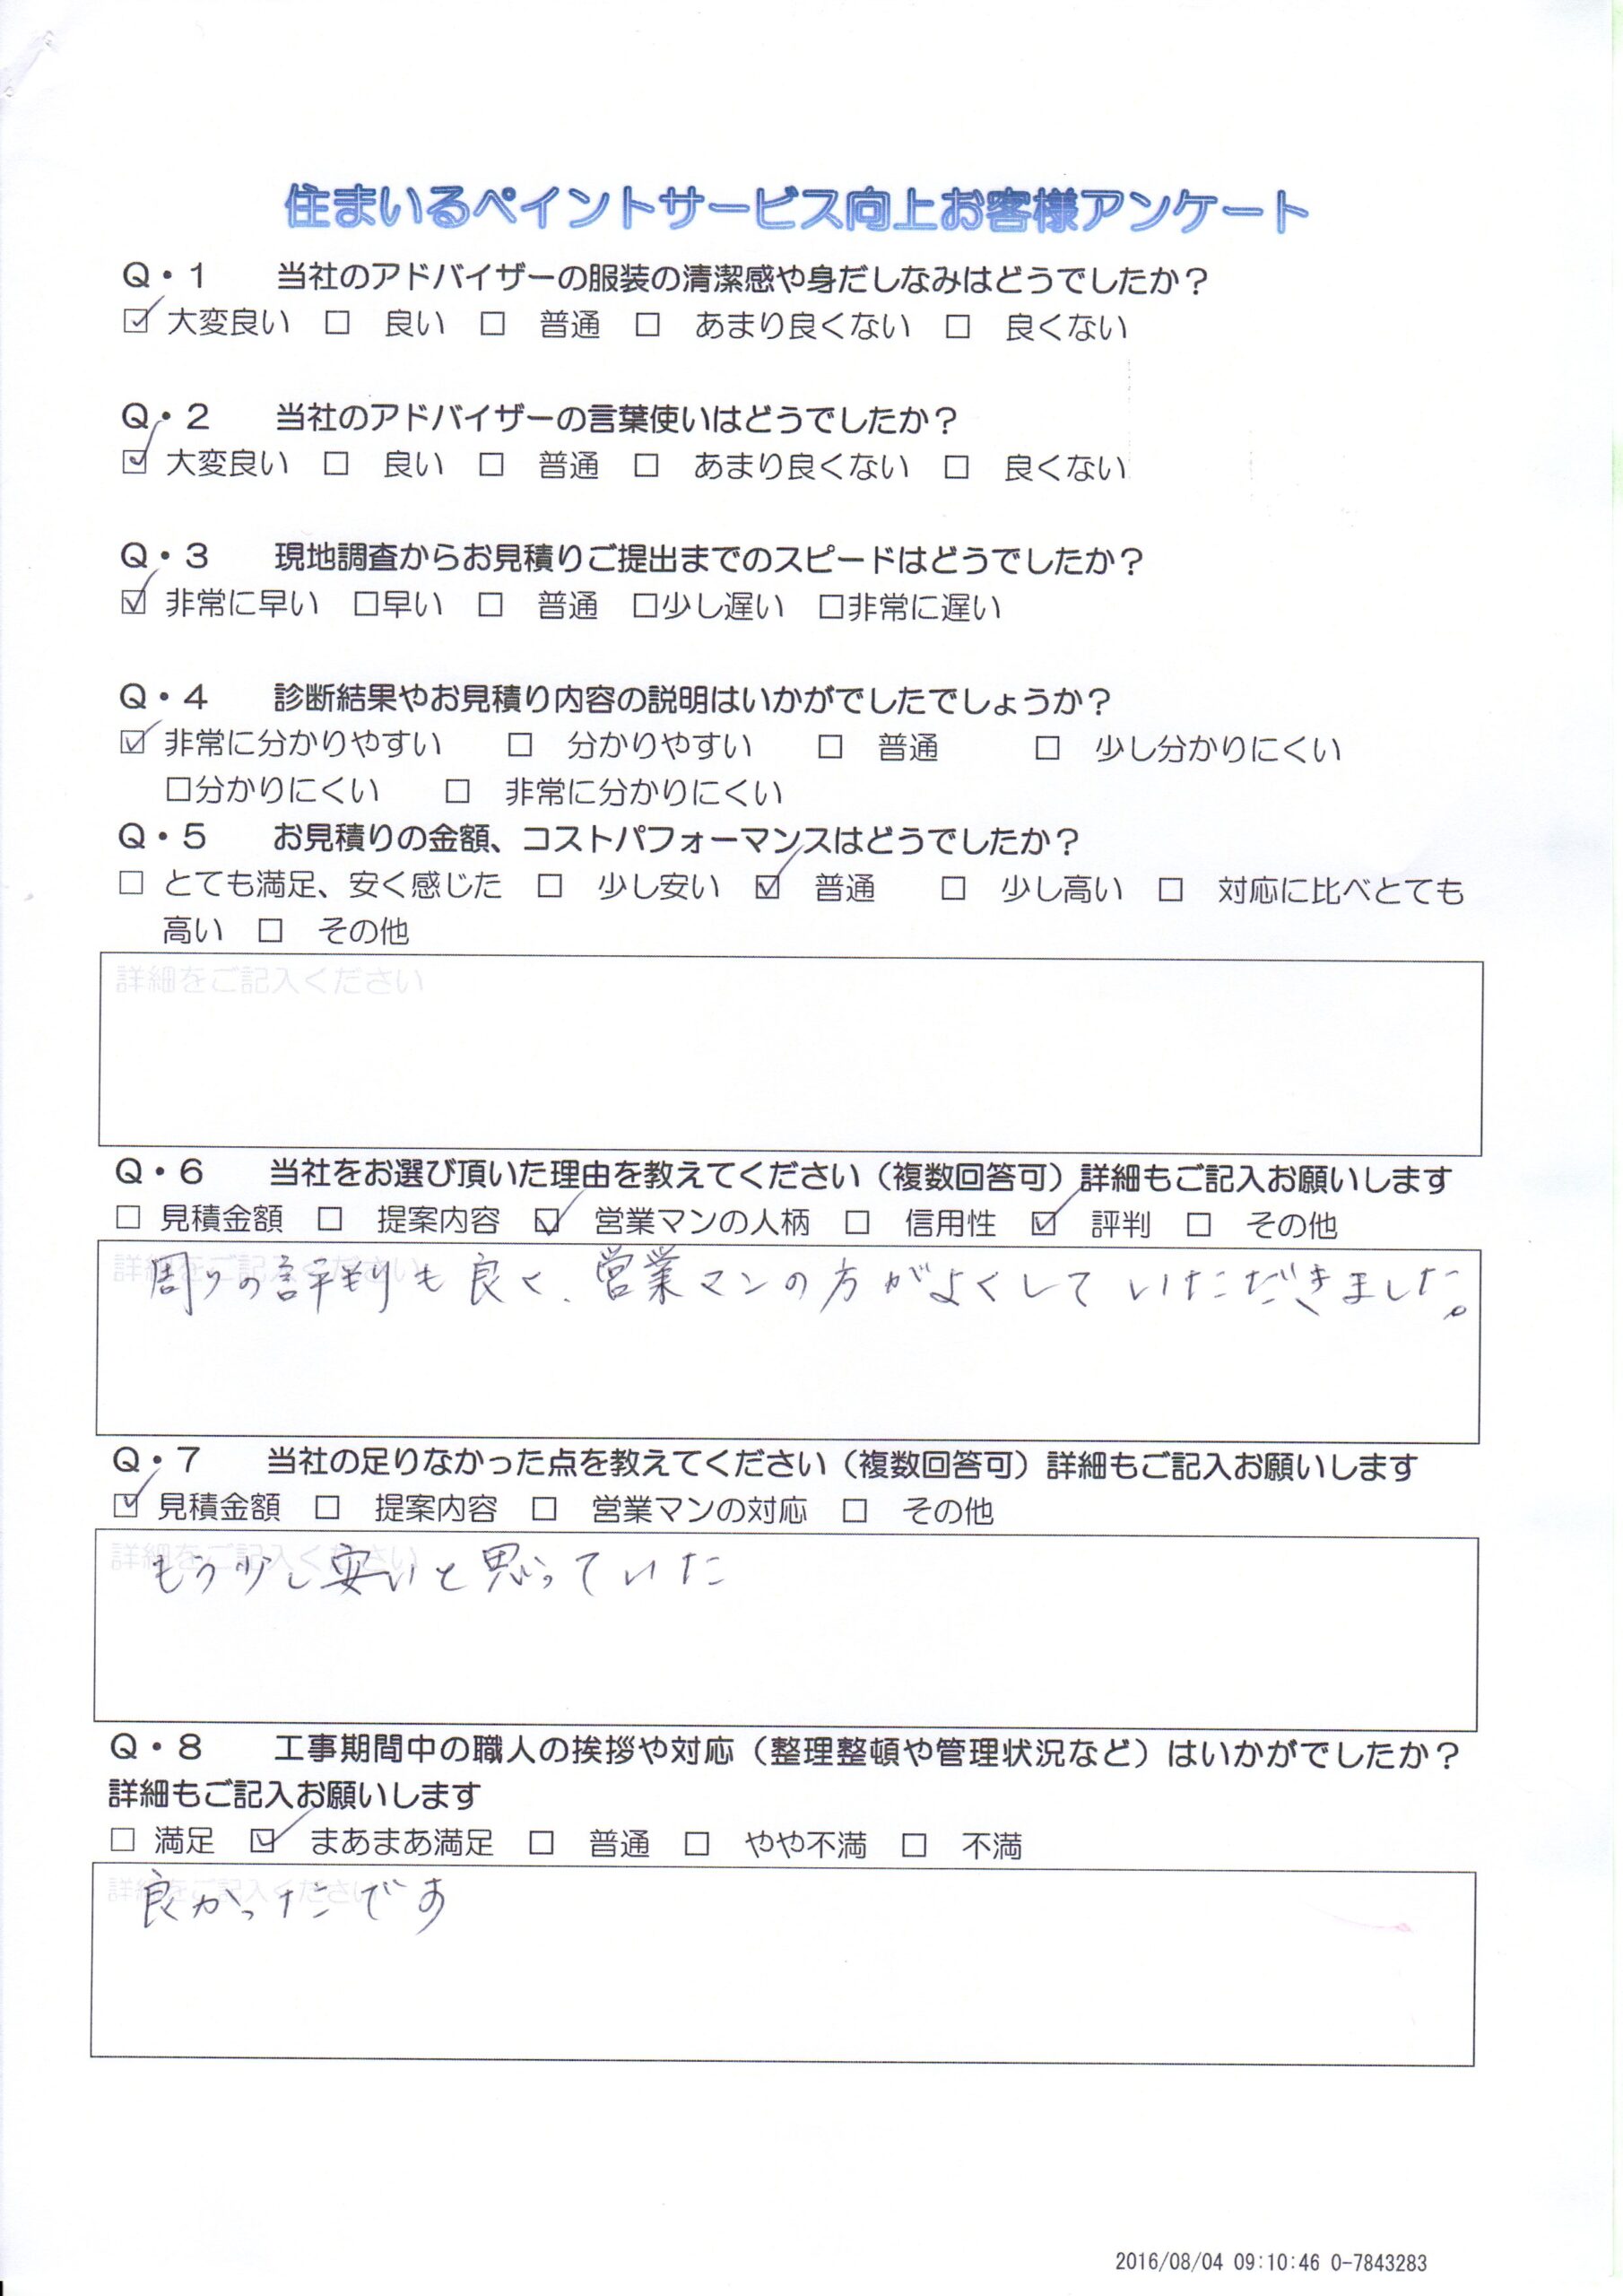 住まいるペイントサービス向上お客様アンケート
Q・1　当社のアドバイザーの服装の清潔感や身だしなみはどうでしたか？
☑ 大変良い　□ 良い　□ 普通　□ あまり良くない　□ 良くない
Q・2　当社のアドバイザーの言葉使いはどうでしたか？
☑ 大変良い　□ 良い　□ 普通　□ あまり良くない　□ 良くない
Q・3　現地調査からお見積りご提出までのスピードはどうでしたか？
☑ 非常に早い　□早い　□ 普通　□少し遅い　□非常に遅い
Q・4　診断結果やお見積り内容の説明はいかがでしたでしょうか？
☑ 非常に分かりやすい　□ 分かりやすい　□ 普通　□ 少し分かりにくい
□分かりにくい　□ 非常に分かりにくい
Q・5　お見積りの金額、コストパフォーマンスはどうでしたか？
□ とても満足、安く感じた　□ 少し安い　☑ 普通　□ 少し高い　□ 対応に比べとても
高い　□ その他
詳細をご記入ください
Q・6　当社をお選び頂いた理由を教えてください（複数回答可）詳細もご記入お願いします
□ 見積金額　□ 提案内容　☑ 営業マンの人柄　□ 信用性　☑ 評判　□ その他
詳細をご記入ください
周りの評判も良く、営業マンの方がよくしていただきました。
Q・7　当社の足りなかった点を教えてください（複数回答可）詳細もご記入お願いします
☑ 見積金額　□ 提案内容　□ 営業マンの対応　□ その他
詳細をご記入ください
もう少し安いと思っていた
Q・8　工事期間中の職人の挨拶や対応（整理整頓や管理状況など）はいかがでしたか？
詳細もご記入お願いします
□ 満足　☑ まあまあ満足　□ 普通　□ やや不満　□ 不満
詳細をご記入ください
良かったです
2016/08/04 09:10:46 0-7843283